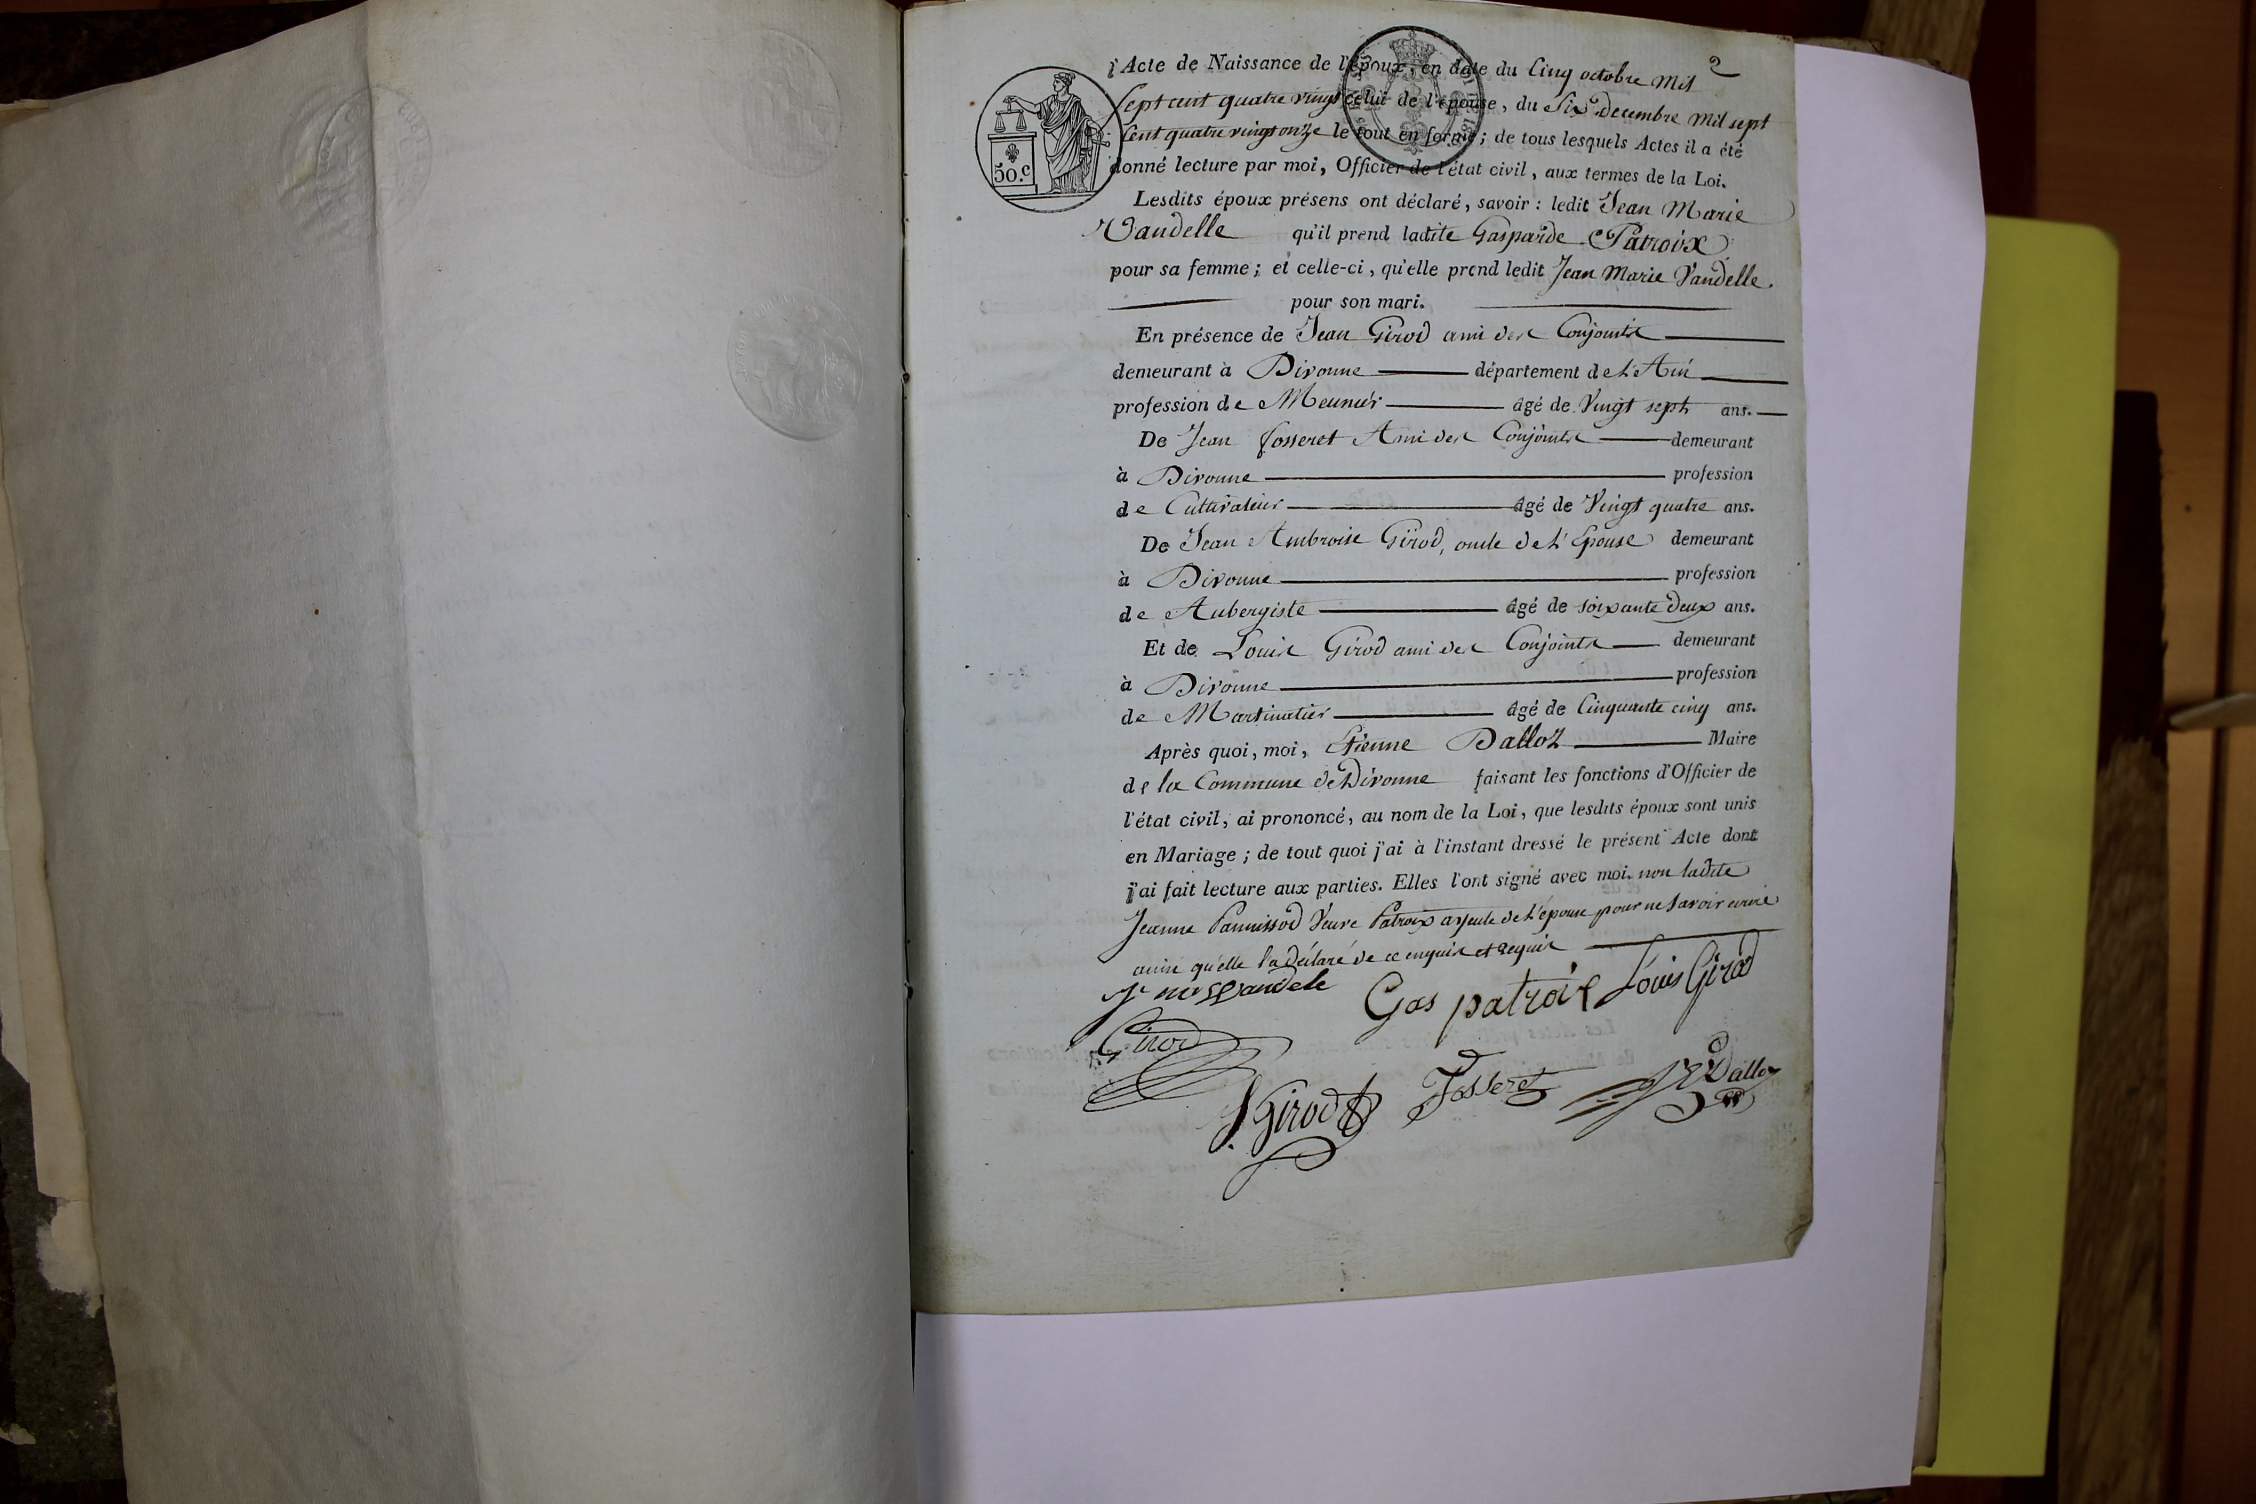 2
l'Acte de Naissance de l'époux, en date du Cinq octobre Mil
Sept cent quatre vingt celui de l'épouse, du Six Decembre Mil sept
Cent quatre vingt onze le tout en forme; de tous lesquels Actes il a été
50.c
donné lecture par moi, Officier de l'état civil, aux termes de la Loi.
Lesdits époux présens ont déclaré, savoir: ledit Jean Marie
Vandelle qu'il prend ladite Gasparde Patroix
pour sa femme; et celle-ci, qu'elle prend ledit Jean Marie Vandelle.
pour son mari.
En présence de Jean Girod ami des Conjoints
demeurant à Divonne département de L'Ain
profession de Meunier âgé de Vingt sept ans.
De Jean fosseret Ami des Conjoints demeurant
à Divonne profession
de Cultivateur âgé de Vingt quatre ans.
De Jean Ambroise Girod, oncle de L'Epouse demeurant
à Divonne profession
de Aubergiste âgé de soixante deux ans.
Et de Louis Girod ami des Conjoints demeurant
à Divonne profession
de Martinatier âgé de Cinquante cinq ans.
Après quoi, moi, Etienne Dalloz Maire
de la Commune de Divonne faisant les fonctions d'Officier de
l'état civil, ai prononcé, au nom de la Loi, que lesdits époux sont unis
en Mariage; de tout quoi j'ai à l'instant dressé le présent Acte dont
j'ai fait lecture aux parties. Elles l'ont signé avec moi. non ladite
Jeanne Pannissod Veuve Patroix ayeule de L'épouse pour ne savoir écrire
ainsi qu'elle l'a Déclaré de ce enquise et requise
Jn mie Vandele Gas patroix Louis Girod
Girod
J. Girod Fosseret Dalloz